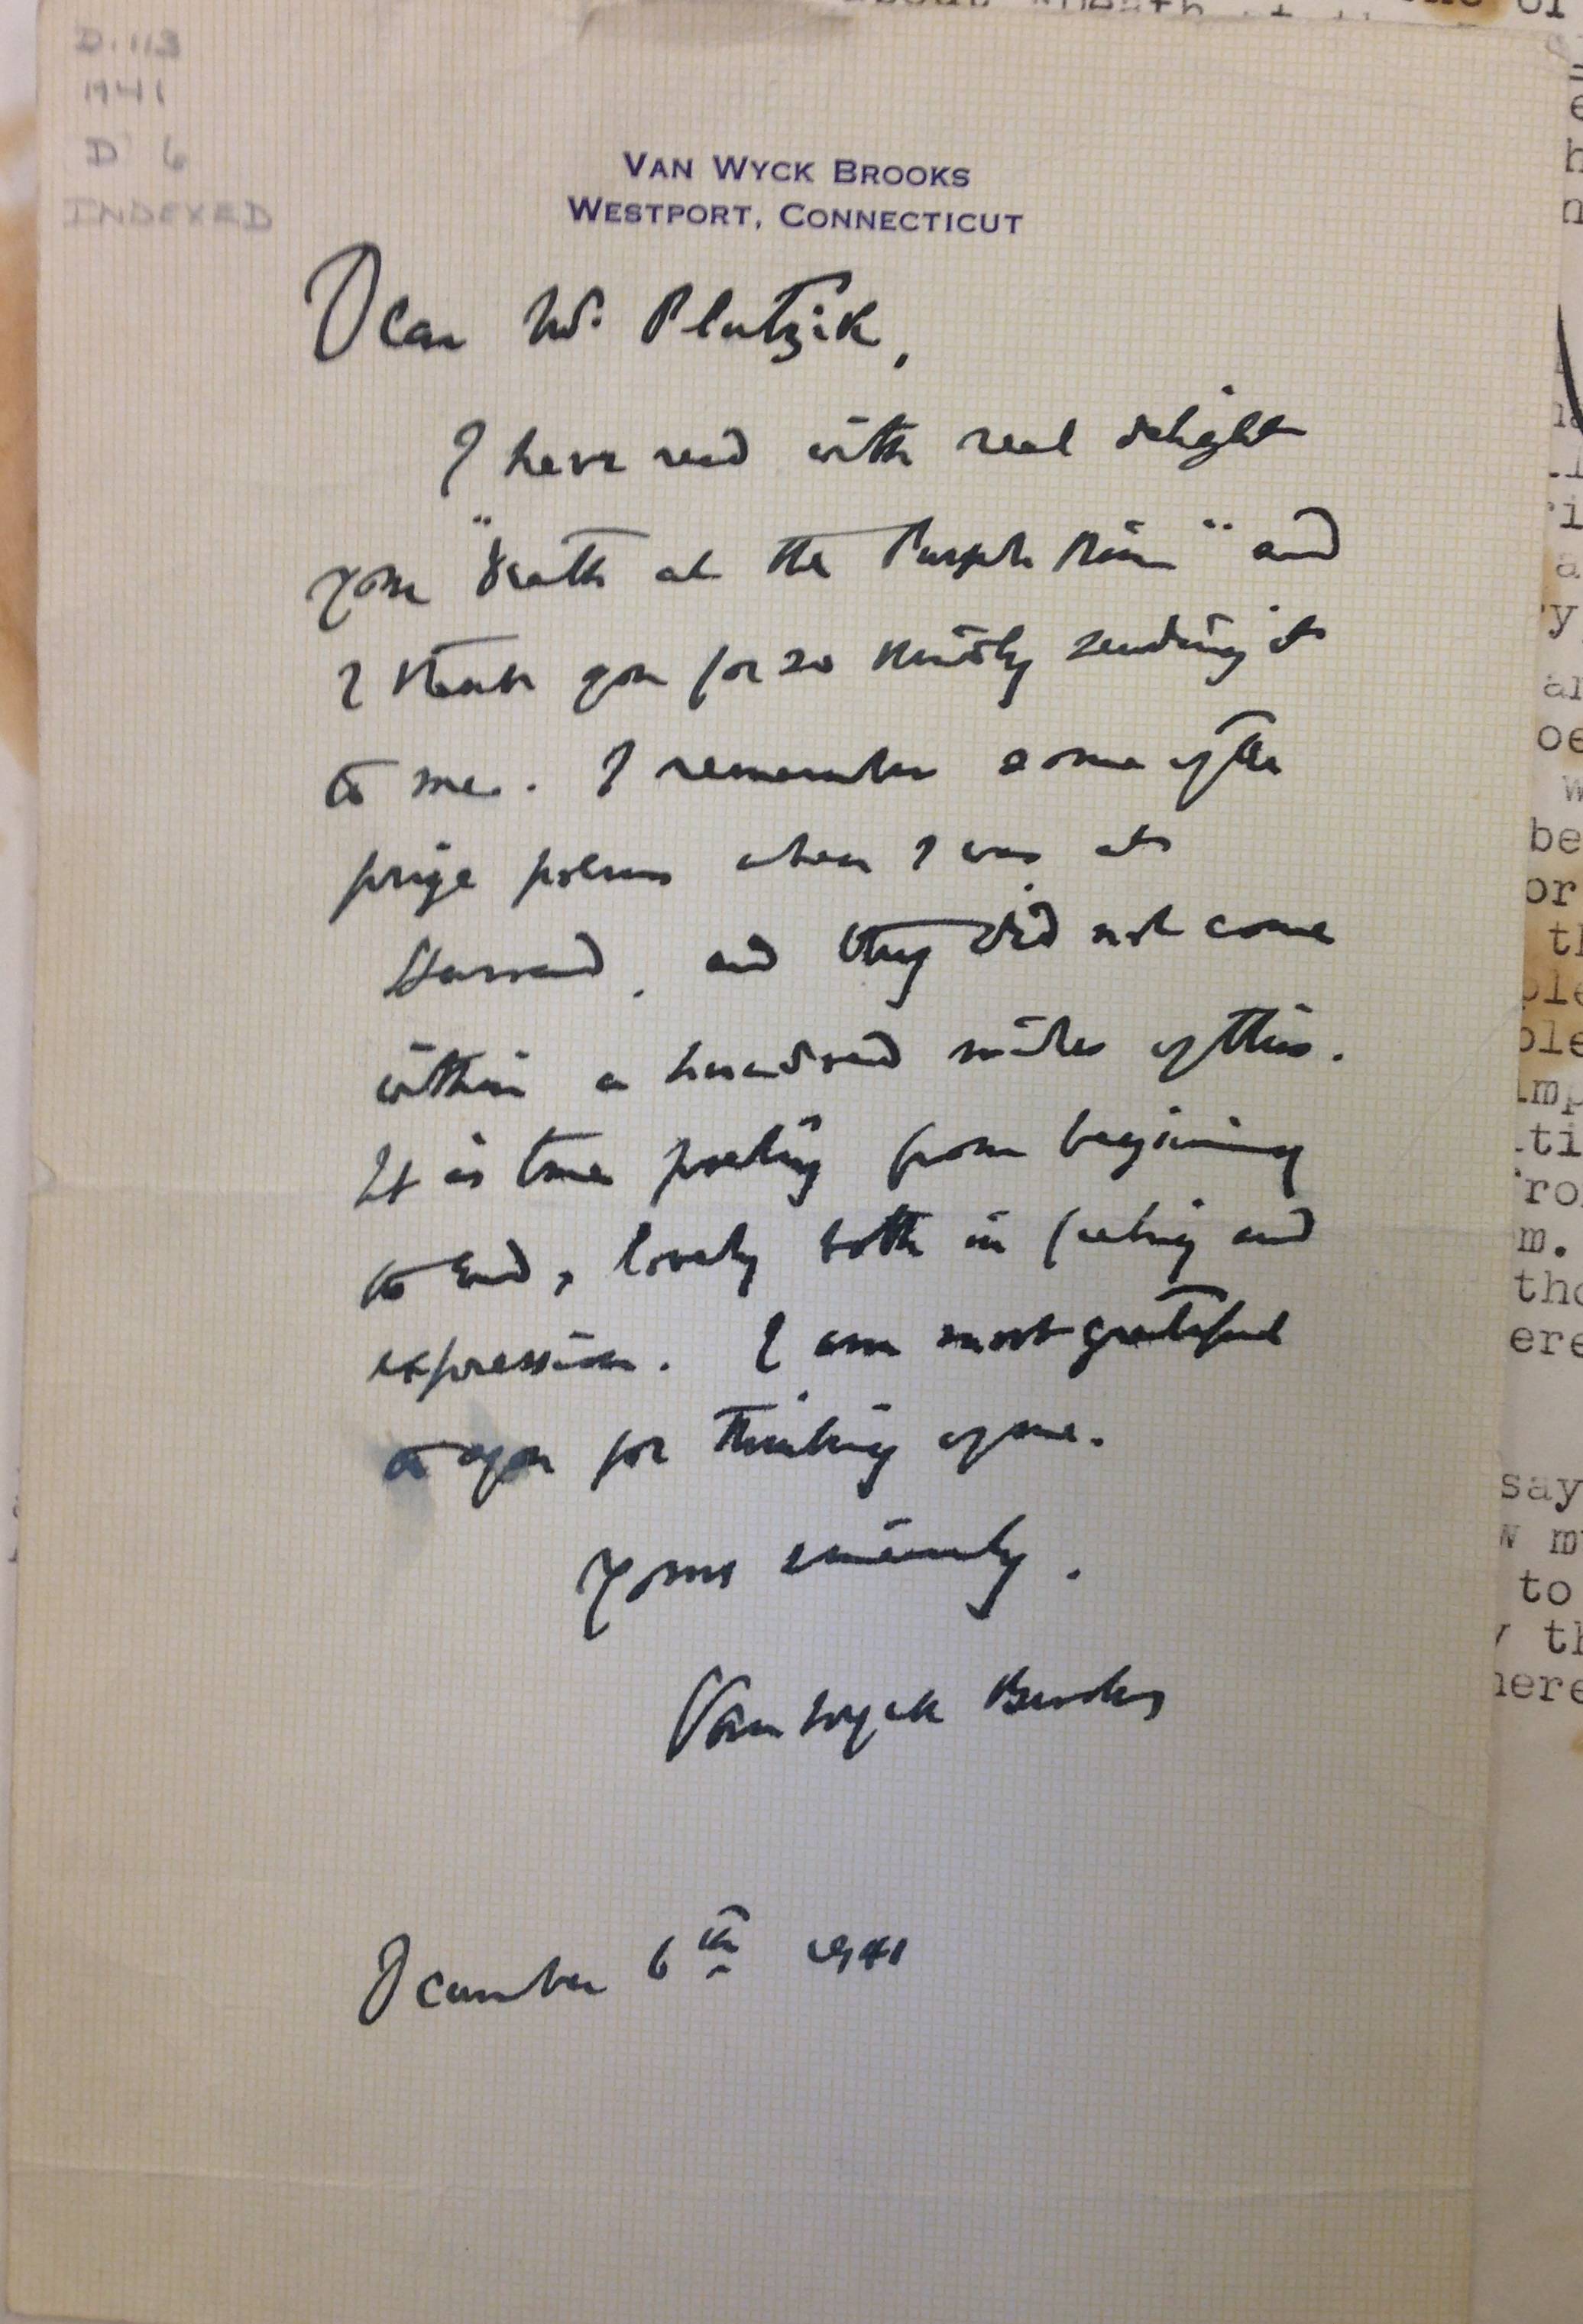 D. 113
1941
D 6
INDEXED
VAN WYCK BROOKS
WESTPORT, CONNECTICUT
Dear Mr. Plutzik,
I have read with real delight
your "Death at the Purple Rim" and
I thank you for so kindly sending it
to me. I remember some of the
prize poems when I was at
Harvard, and they did not come
within a hundred miles of this.
It is true poetry from beginning
to end, lovely both in feeling and
expression. I am most grateful
to you for thinking of me.
Yours sincerely,
Van Wyck Brooks
December 6th 1941
be
or
say
to